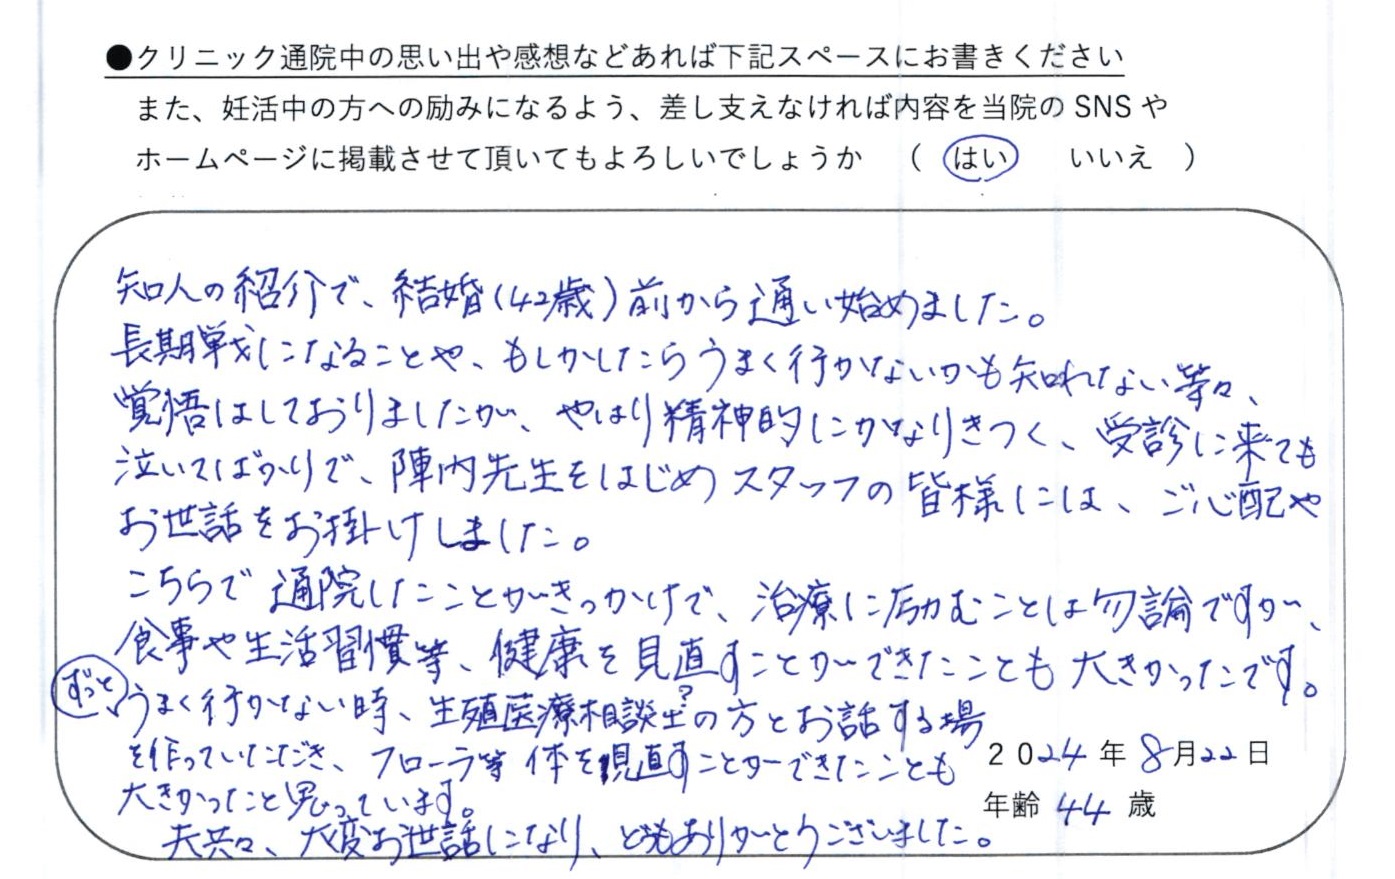 ●クリニック通院中の思い出や感想などあれば下記スペースにお書きください
また、妊活中の方への励みになるよう、差し支えなければ内容を当院の SNS や
ホームページに掲載させて頂いてもよろしいでしょうか （ はい いいえ ）
知人の紹介で、結婚(42歳)前から通い始めました。
長期戦になることや、もしかしたらうまく行かないかも知れない等々、
覚悟はしておりましたが、やはり精神的にかなりきつく、受診に来ても
泣いてばかりで、陣内先生をはじめスタッフの皆様には、ご心配や
お世話をお掛けしました。
こちらで通院したことがきっかけで、治療に励むことは勿論ですが、
食事や生活習慣等、健康を見直すことができたことも大きかったです。
ずっとうまく行かない時、生殖医療相談士?の方とお話する場
を作っていただき、フローラ等体を見直すことができたことも
大きかったと思っています。
夫共々、大変お世話になり、どうもありがとうございました。
2024年8月22日
年齢 44 歳